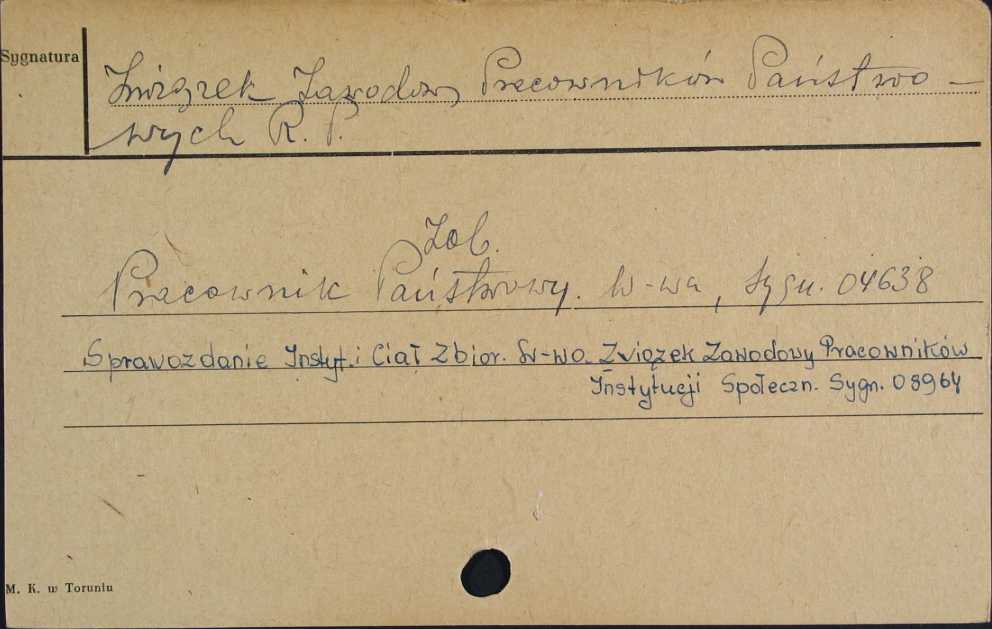 Sygnatura
Związek Zawodowy Pracowników Państwo-
wych R. P.
Zob.
Pracownik Państwowy. W-wa, Sygn. 04638
Sprawozdanie Instyt. i Ciał Zbior. W-wo. Związek Zawodowy Pracowników
Instytucji Społeczn. Sygn. 08964
M. K. w Toruniu